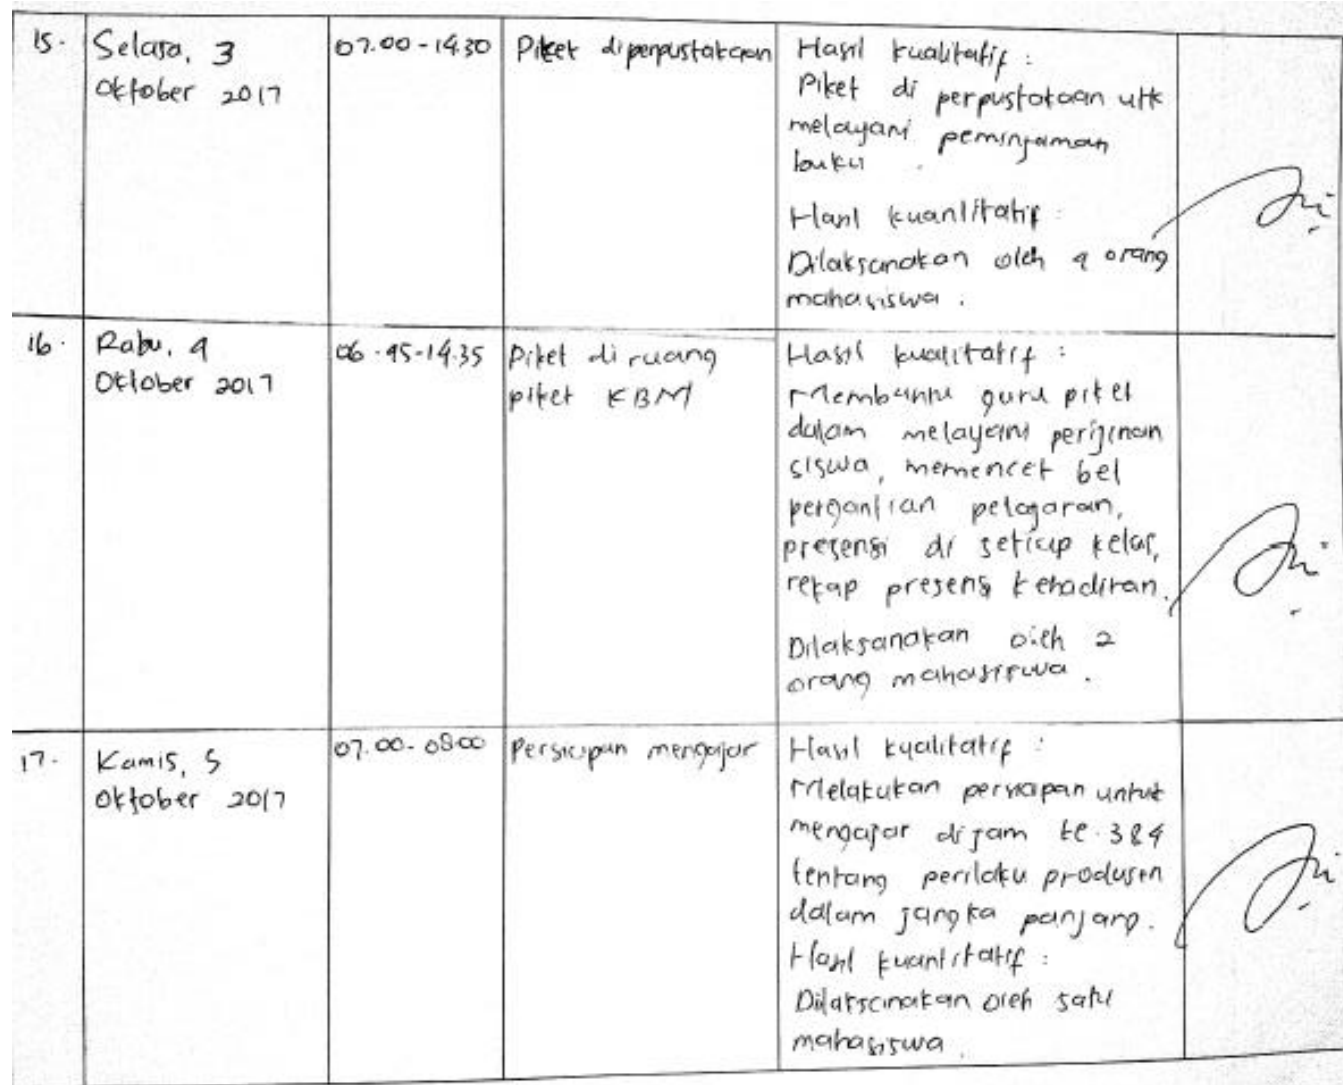 15.
Selasa, 3
Oktober 2017
07.00 - 14.30
Piket diperpustakaan
Hasil kualitatif :
Piket di perpustakaan utk
melayani peminjaman
buku.
Hasil kuantitatif :
Dilaksanakan oleh 4 orang
mahasiswa.
16.
Rabu, 4
Oktober 2017
06.45-14.35
Piket di ruang
piket KBM
Hasil kualitatif :
Membantu guru piket
dalam melayani perijinan
siswa, memencet bel
pergantian pelajaran,
presensi di setiap kelas,
rekap presensi kehadiran.
Dilaksanakan oleh 2
orang mahasiswa.
17.
Kamis, 5
Oktober 2017
07.00 - 08.00
Persiapan mengajar
Hasil kualitatif :
Melakukan persiapan untuk
mengajar di jam ke. 3&4
tentang perilaku produsen
dalam jangka panjang.
Hasil kuantitatif :
Dilaksanakan oleh satu
mahasiswa.